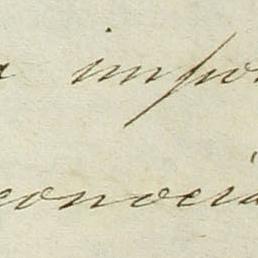 a impo
conocia